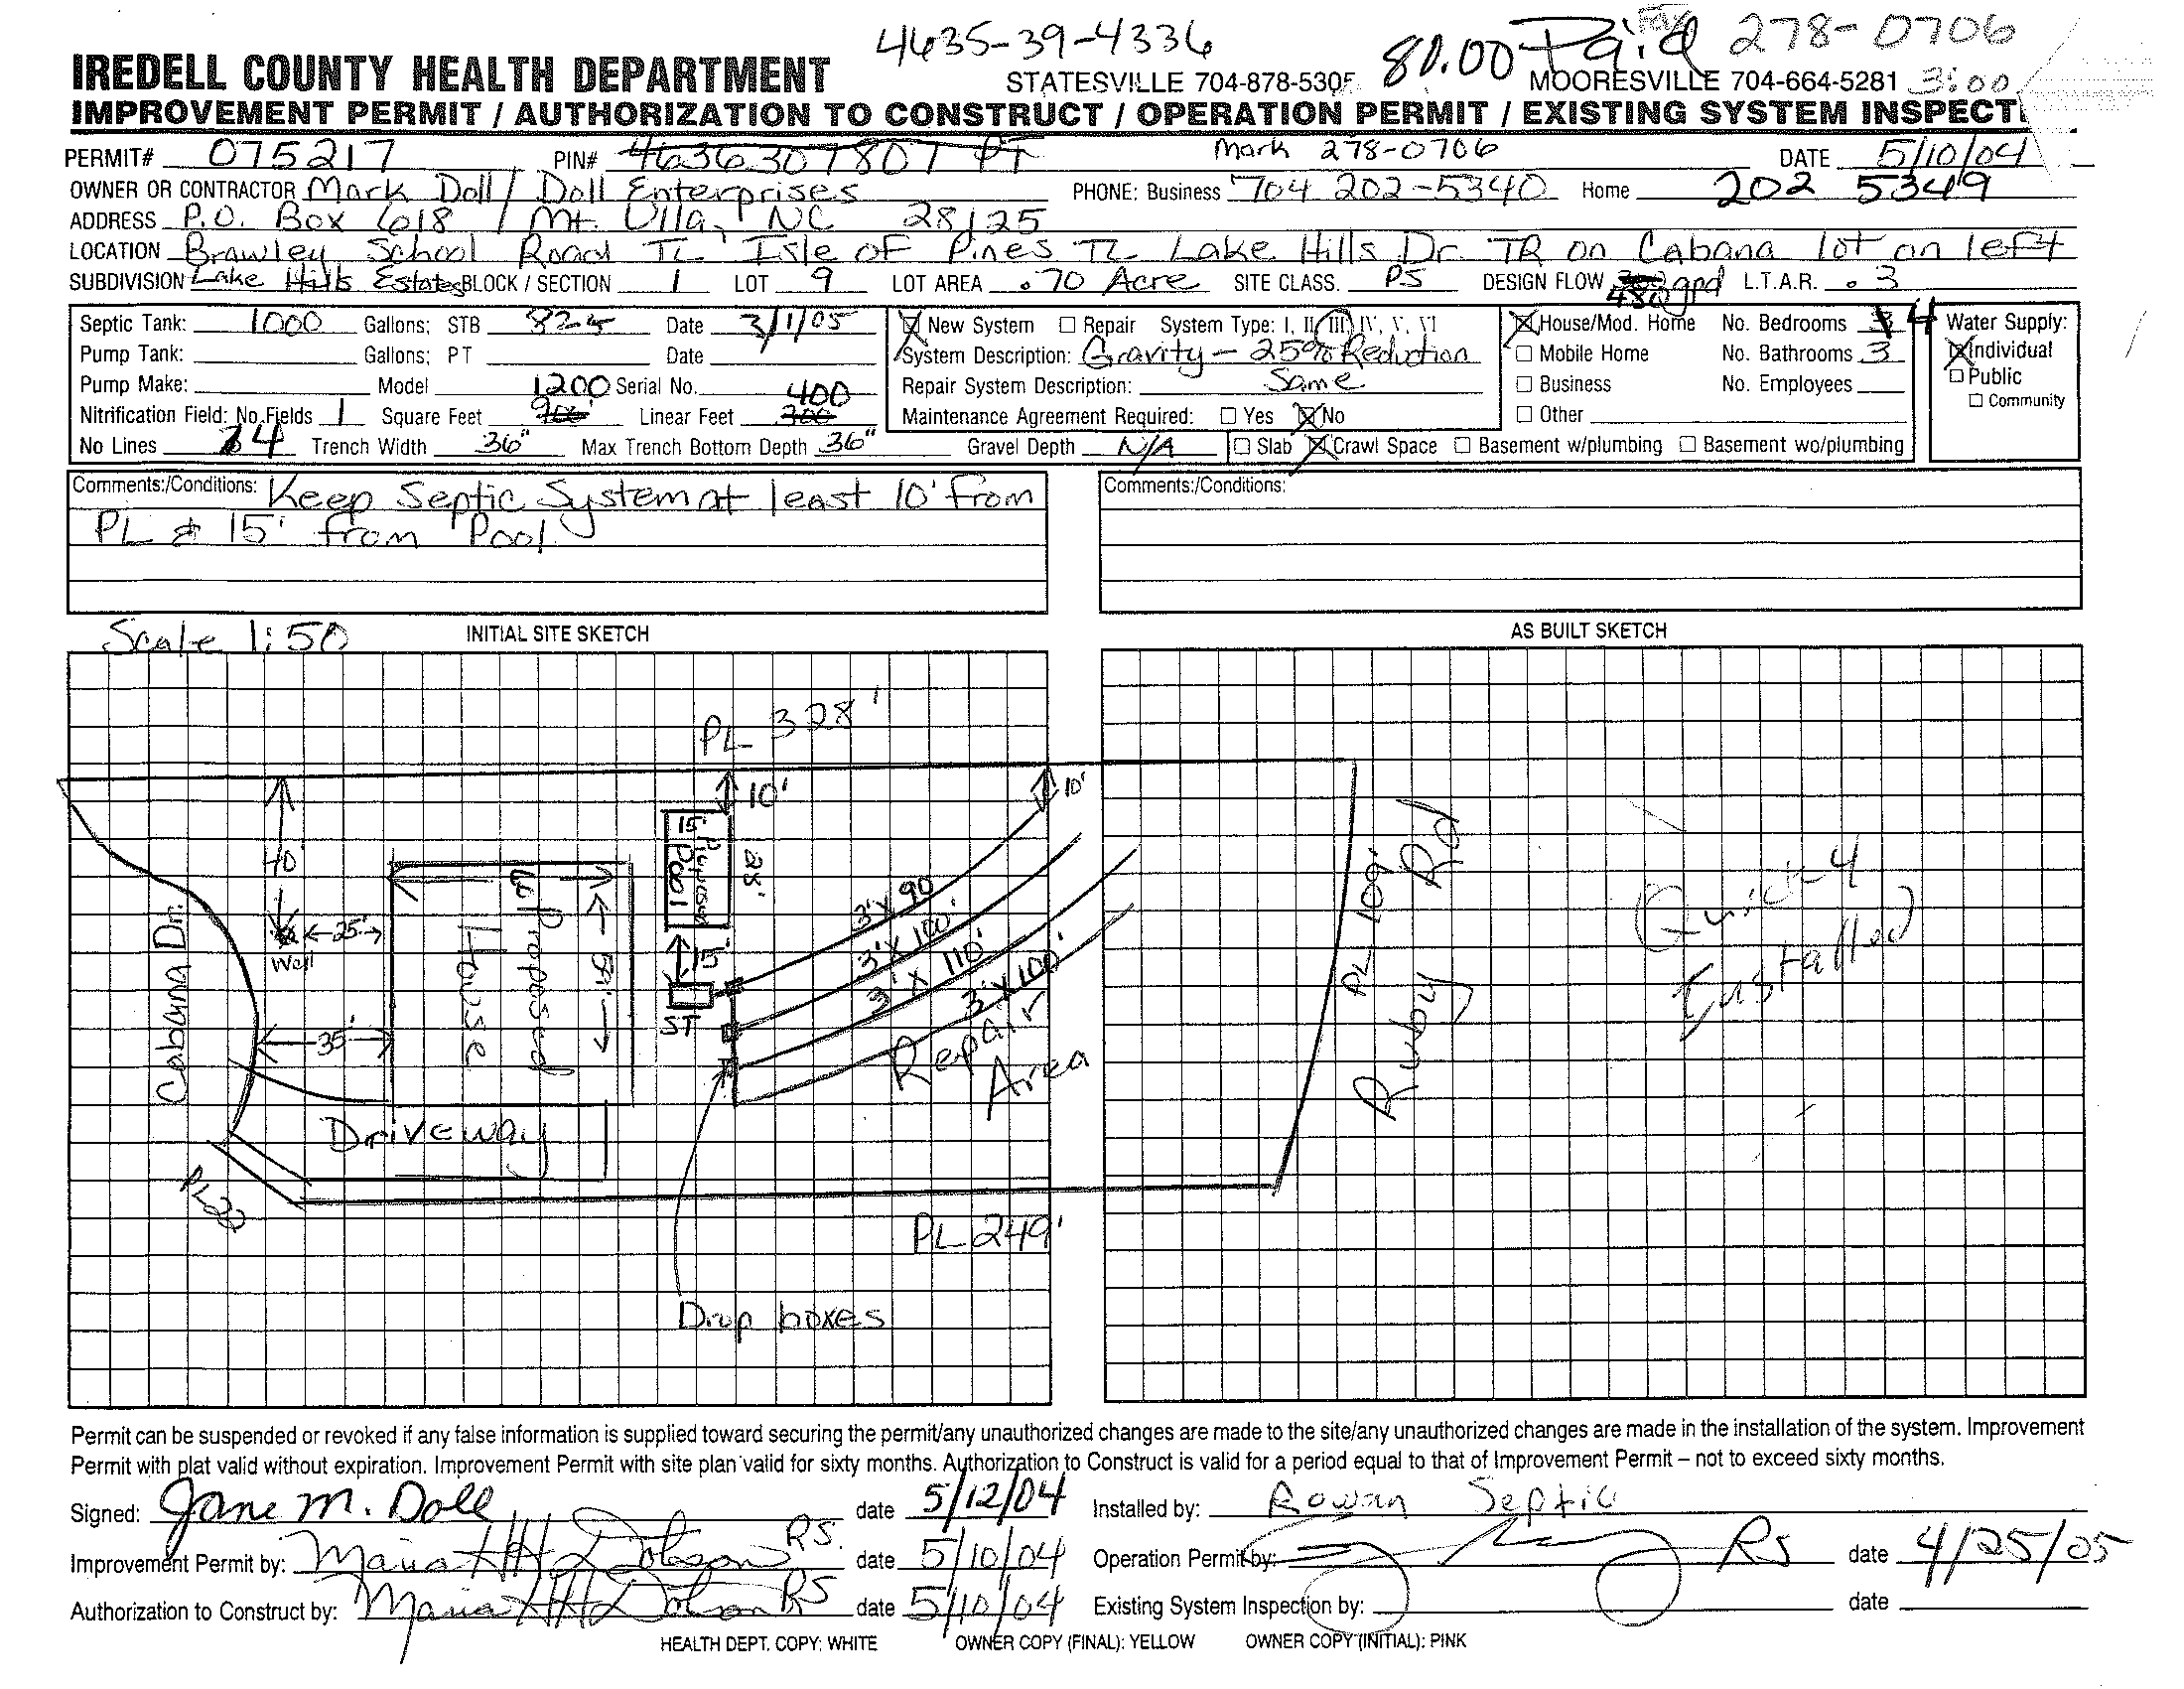 4635-39-4336
80.00 Paid 278-0706
IREDELL COUNTY HEALTH DEPARTMENT STATESVILLE 704-878-5305 MOORESVILLE 704-664-5281 3:00
IMPROVEMENT PERMIT / AUTHORIZATION TO CONSTRUCT / OPERATION PERMIT / EXISTING SYSTEM INSPECTI
PERMIT# 075217 PIN# 4636307807 PT Mark 278-0706 DATE 5/10/04
OWNER OR CONTRACTOR Mark Doll / Doll Enterprises PHONE: Business 704 202-5340 Home 202 5349
ADDRESS P.O. Box 618 / Mt. Ulla, NC 28125
LOCATION Brawley School Road TL Isle of Pines TL Lake Hills Dr. TR on Cabana lot on left
SUBDIVISION Lake Hills Estates BLOCK / SECTION 1 LOT 9 LOT AREA .70 Acre SITE CLASS. PS DESIGN FLOW 480 gpd L.T.A.R. .3
Septic Tank: 1000 Gallons; STB 825 Date 3/1/05
Pump Tank: Gallons; PT Date
Pump Make: Model Serial No.
1200 400
Nitrification Field: No. Fields 1 Square Feet 900 Linear Feet 300
No Lines 4 Trench Width 36" Max Trench Bottom Depth 36" Gravel Depth N/A
New System Repair System Type: I, II, III, IV, V, VI
System Description: Gravity - 25% Reduction
Repair System Description: Same
Maintenance Agreement Required: Yes No
House/Mod. Home No. Bedrooms 4
Mobile Home No. Bathrooms 3
Business No. Employees
Other
Slab Crawl Space Basement w/plumbing Basement wo/plumbing
Water Supply:
Individual
Public
Community
Comments:/Conditions: Keep Septic System at least 10' from
PL & 15' from Pool
Comments:/Conditions:
Scale 1:50 INITIAL SITE SKETCH
AS BUILT SKETCH
PL 328'
10'
10'
40'
15'
Proposed
Pool
28'
Well
25'
Cabana Dr.
Proposed
House
51'
15'
ST
35'
3' X 90
3' X 100'
3' X 110'
3' X 100'
Repair
Area
Driveway
PL 109'
Ruby Rd
Quick 4
Installed
PL 249'
Drop boxes
Permit can be suspended or revoked if any false information is supplied toward securing the permit/any unauthorized changes are made to the site/any unauthorized changes are made in the installation of the system. Improvement
Permit with plat valid without expiration. Improvement Permit with site plan valid for sixty months. Authorization to Construct is valid for a period equal to that of Improvement Permit – not to exceed sixty months.
Signed: Jane M. Doll date 5/12/04 Installed by: Rowan Septic
Improvement Permit by: Maria HH Dobson RS. date 5/10/04 Operation Permit by: RS date 4/25/05
Authorization to Construct by: Maria HH Dobson RS date 5/10/04 Existing System Inspection by: date
HEALTH DEPT. COPY: WHITE OWNER COPY (FINAL): YELLOW OWNER COPY (INITIAL): PINK